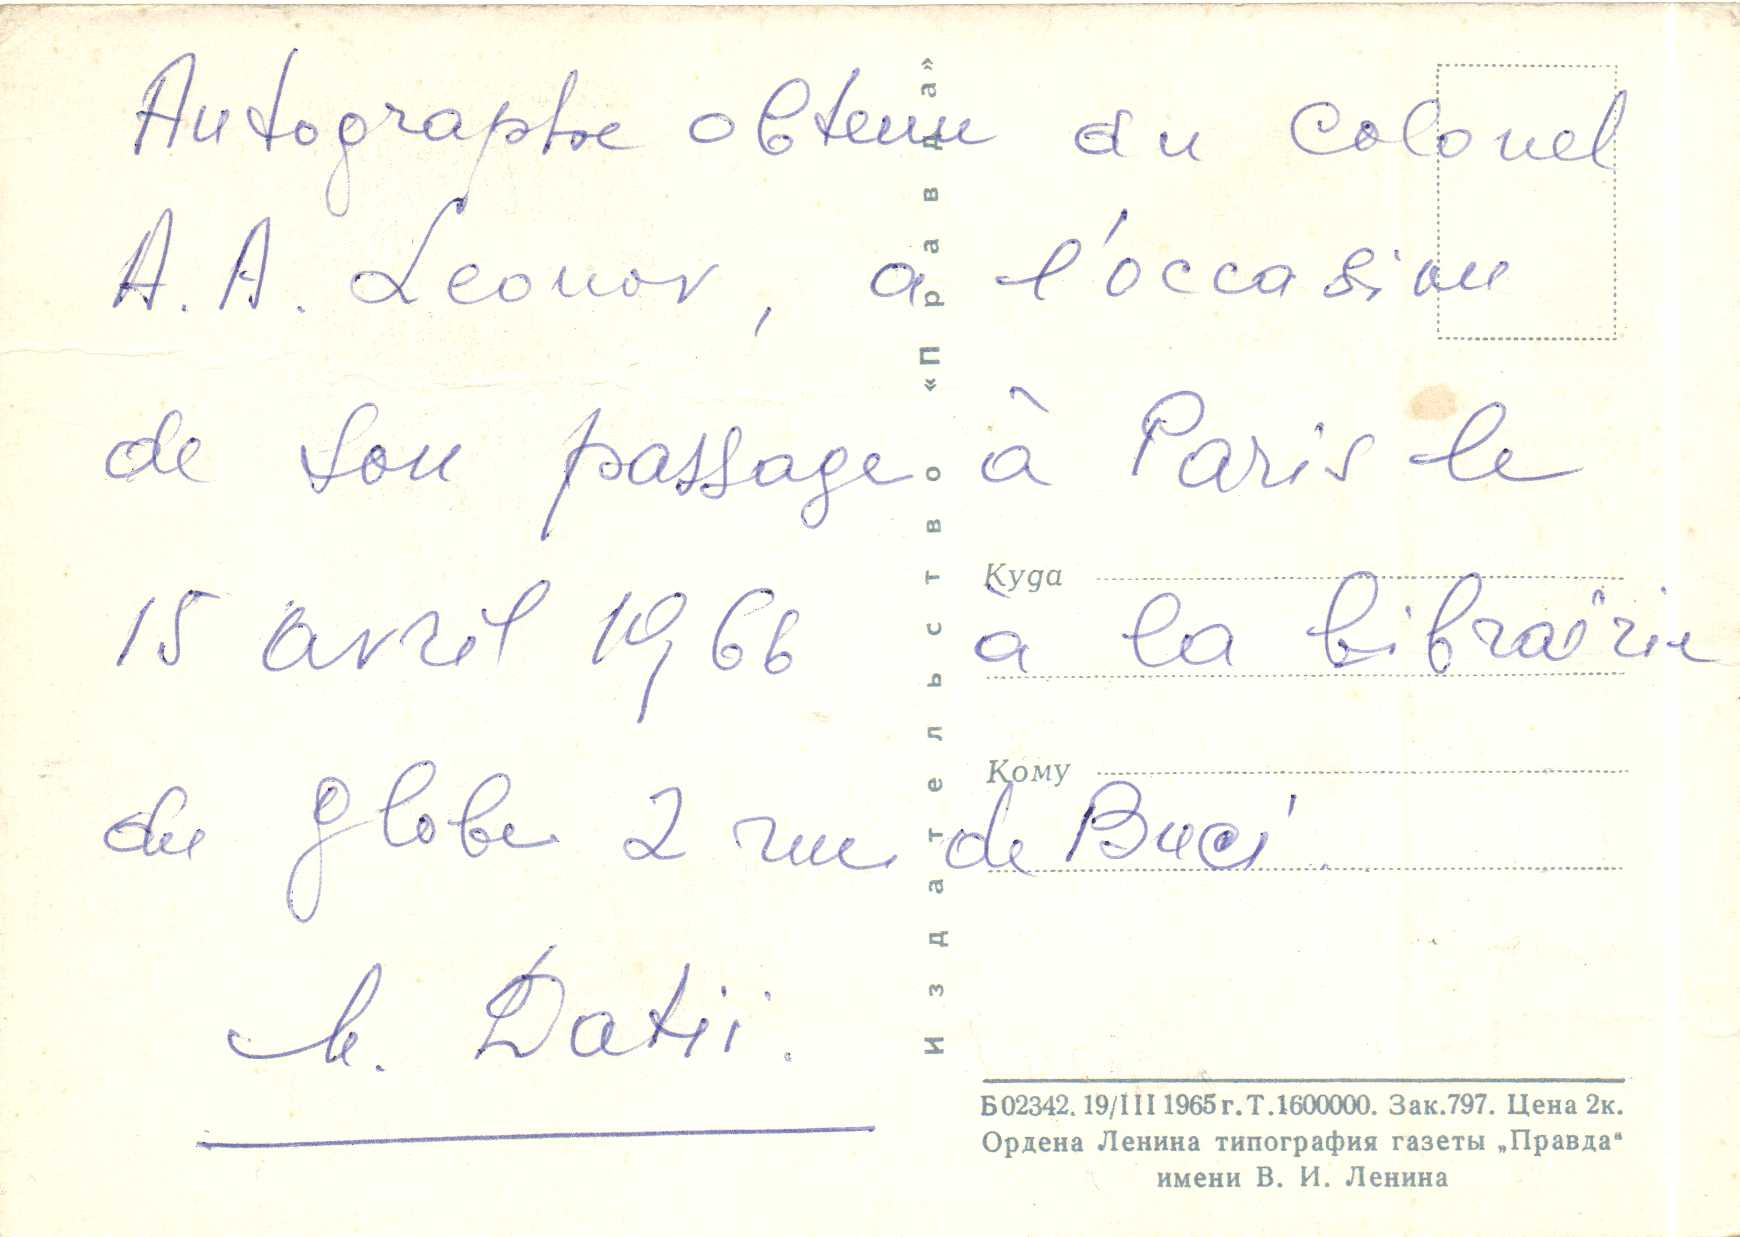 Autographe obtenu du colonel
A. A. Leonov, a l'occasion
de son passage à Paris le
15 avril 1966 à la librairie
du globe 2 rue de Buci.
Datii.
Издательство «Правда»
Куда
Кому
Б 02342. 19/III 1965 г. Т. 1600000. Зак. 797. Цена 2к.
Ордена Ленина типография газеты „Правда“
имени В. И. Ленина